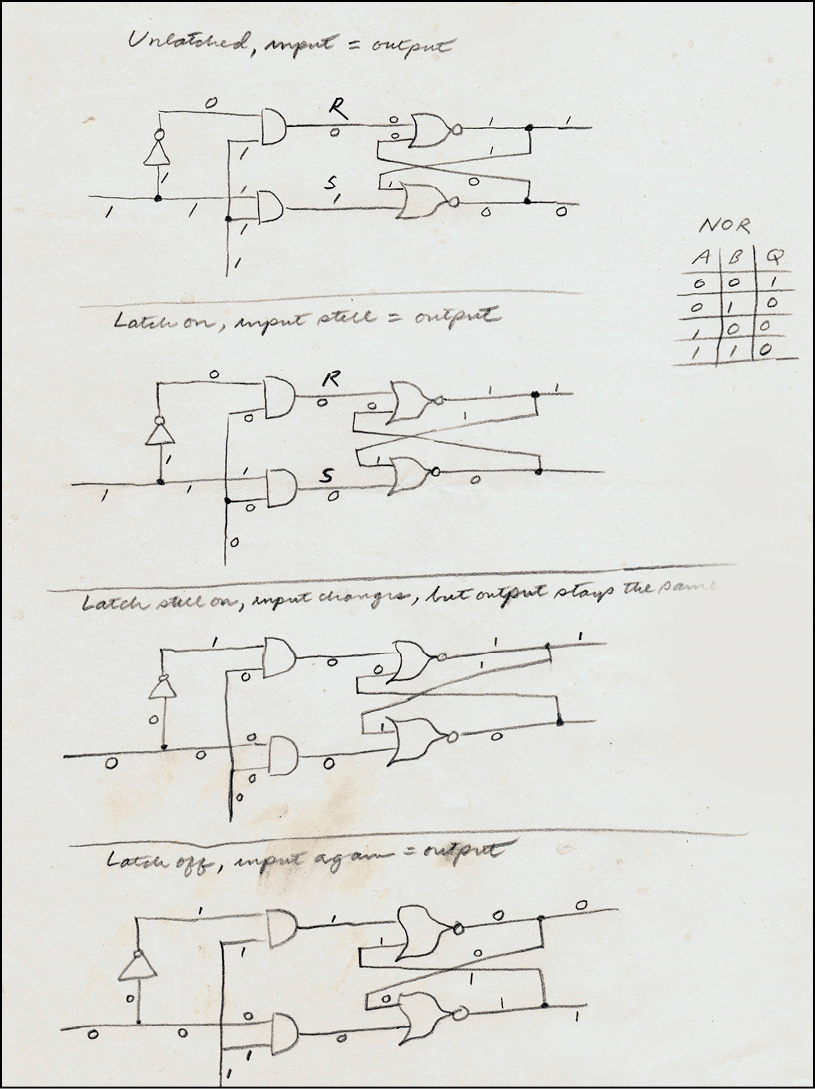 Unlatched, input = output
0
R
0
0
1
1
0
1
1
1
1
S
1
1
0
1
1
1
0
0
1
NOR
A B Q
0 0 1
0 1 0
1 0 0
1 1 0
Latch on, input still = output
0
R
0
0
1
1
0
1
1
1
S
1
1
1
0
0
0
0
Latch still on, input changes, but output stays the same
1
1
1
0
0
0
1
0
0
1
0
0
0
0
0
0
Latch off, input again = output
1
1
0
0
1
1
0
0
1
0
0
1
0
0
1
0
1
1